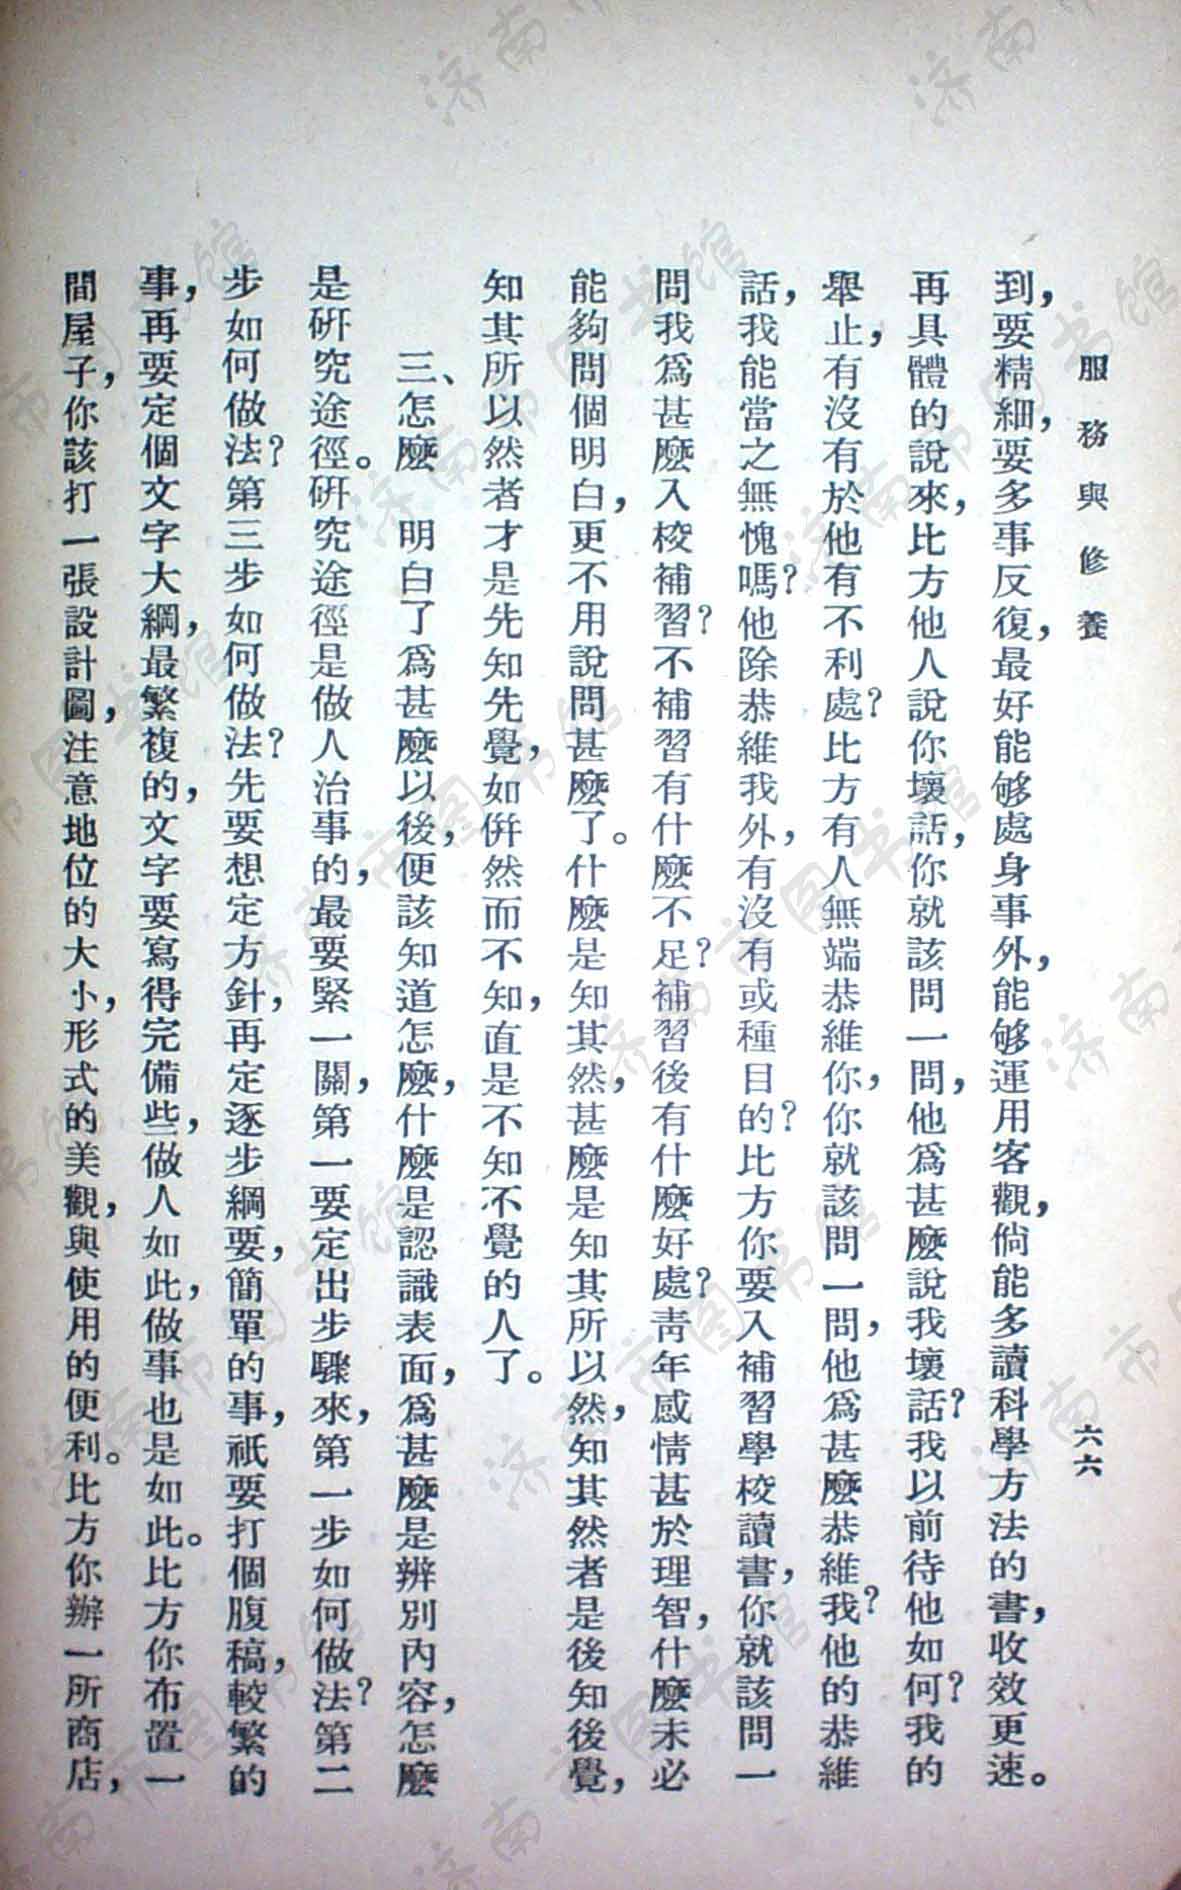 服務與修養
六六
到，要精細，要多事反復，最好能够處身事外，能够運用客觀，倘能多讀科學方法的書，收效更速。
再具體的說來，比方他人說你壞話，你就該問一問，他爲甚麼說我壞話？我以前待他如何？我的
舉止，有沒有於他有不利處？比方有人無端恭維你，你就該問一問，他爲甚麼恭維我？他的恭維
話，我能當之無愧嗎？他除恭維我外，有沒有或種目的？比方你要入補習學校讀書，你就該問一
問我爲甚麼入校補習？不補習有什麼不足？補習後有什麼好處？靑年感情甚於理智，什麼未必
能夠問個明白，更不用說問甚麼了。什麼是知其然，甚麼是知其所以然，知其然者是後知後覺，
知其所以然者才是先知先覺，如倂然而不知，直是不知不覺的人了。
三、怎麼　明白了爲甚麼以後，便該知道怎麼，什麼是認識表面，爲甚麼是辨別內容，怎麼
是硏究途徑。硏究途徑是做人治事的，最要緊一關，第一要定出步驟來，第一步如何做法？第二
步如何做法？第三步如何做法？先要想定方針，再定逐步綱要，簡單的事，祇要打個腹稿，較繁的
事，再要定個文字大綱，最繁複的，文字要寫得完備些，做人如此，做事也是如此。比方你布置一
間屋子，你該打一張設計圖，注意地位的大小，形式的美觀，與使用的便利。比方你辦一所商店，
济南市图书馆